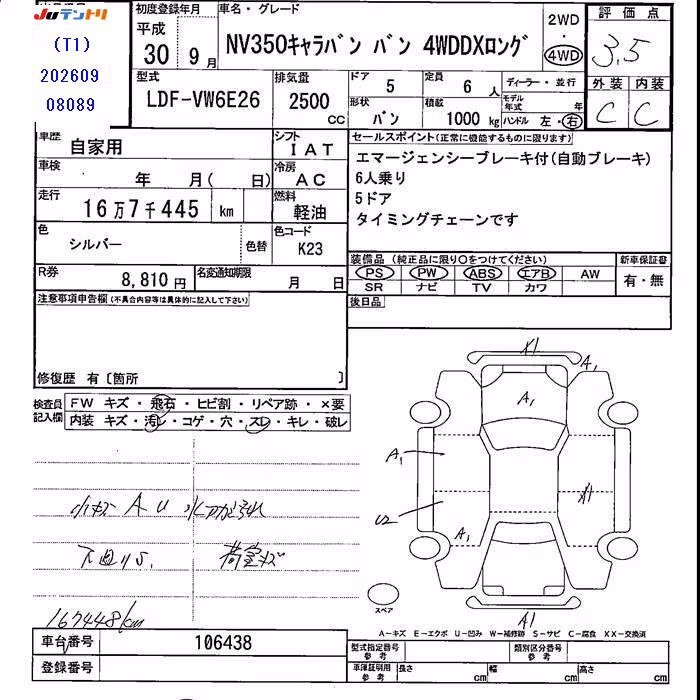 JUテントリ
(T1)
202609
08089
初度登録年月
平成
30年 9月
車名・グレード
NV350キャラバン バン 4WDDXロング
2WD
・
4WD
評価点
3.5
外装 内装
C C
型式
LDF-VW6E26
排気量
2500
CC
ドア
5
定員
6人
ディーラー・並行
形状
バン
積載
1000kg
モデル年式 年
ハンドル 左・右
車歴
自家用
シフト
IAT
車検
年 月( 日)
冷房
AC
走行
16万7千445 km
燃料
軽油
色
シルバー
色替
色コード
K23
R券
8,810円
名変通知期限
月 日
セールスポイント(正常に機能するものに限ります)
エマージェンシーブレーキ付(自動ブレーキ)
6人乗り
5ドア
タイミングチェーンです
装備品(純正品に限り○をつけてください)
新車保証書
PS PW ABS エアB AW
有・無
SR ナビ TV カワ
後日品
注意事項申告欄(不具合内容等は具体的に記入して下さい)
修復歴 有〔箇所 〕
検査員記入欄
FW キズ・飛石・ヒビ割・リペア跡・×要
内装 キズ・汚レ・コゲ・穴・スレ・キレ・破レ
小キズ A U
下廻りS
荷室キズ
167448km
X1
A1
A1
A1
U2
A1
X1
A1
スペア
A-キズ E-エクボ U-凹み W-補修跡 S-サビ C-腐食 XX-交換済
車台番号
106438
登録番号
型式指定番号
参考
類別区分番号
参考
車庫証明用
参考
長さ cm 幅 cm 高さ cm